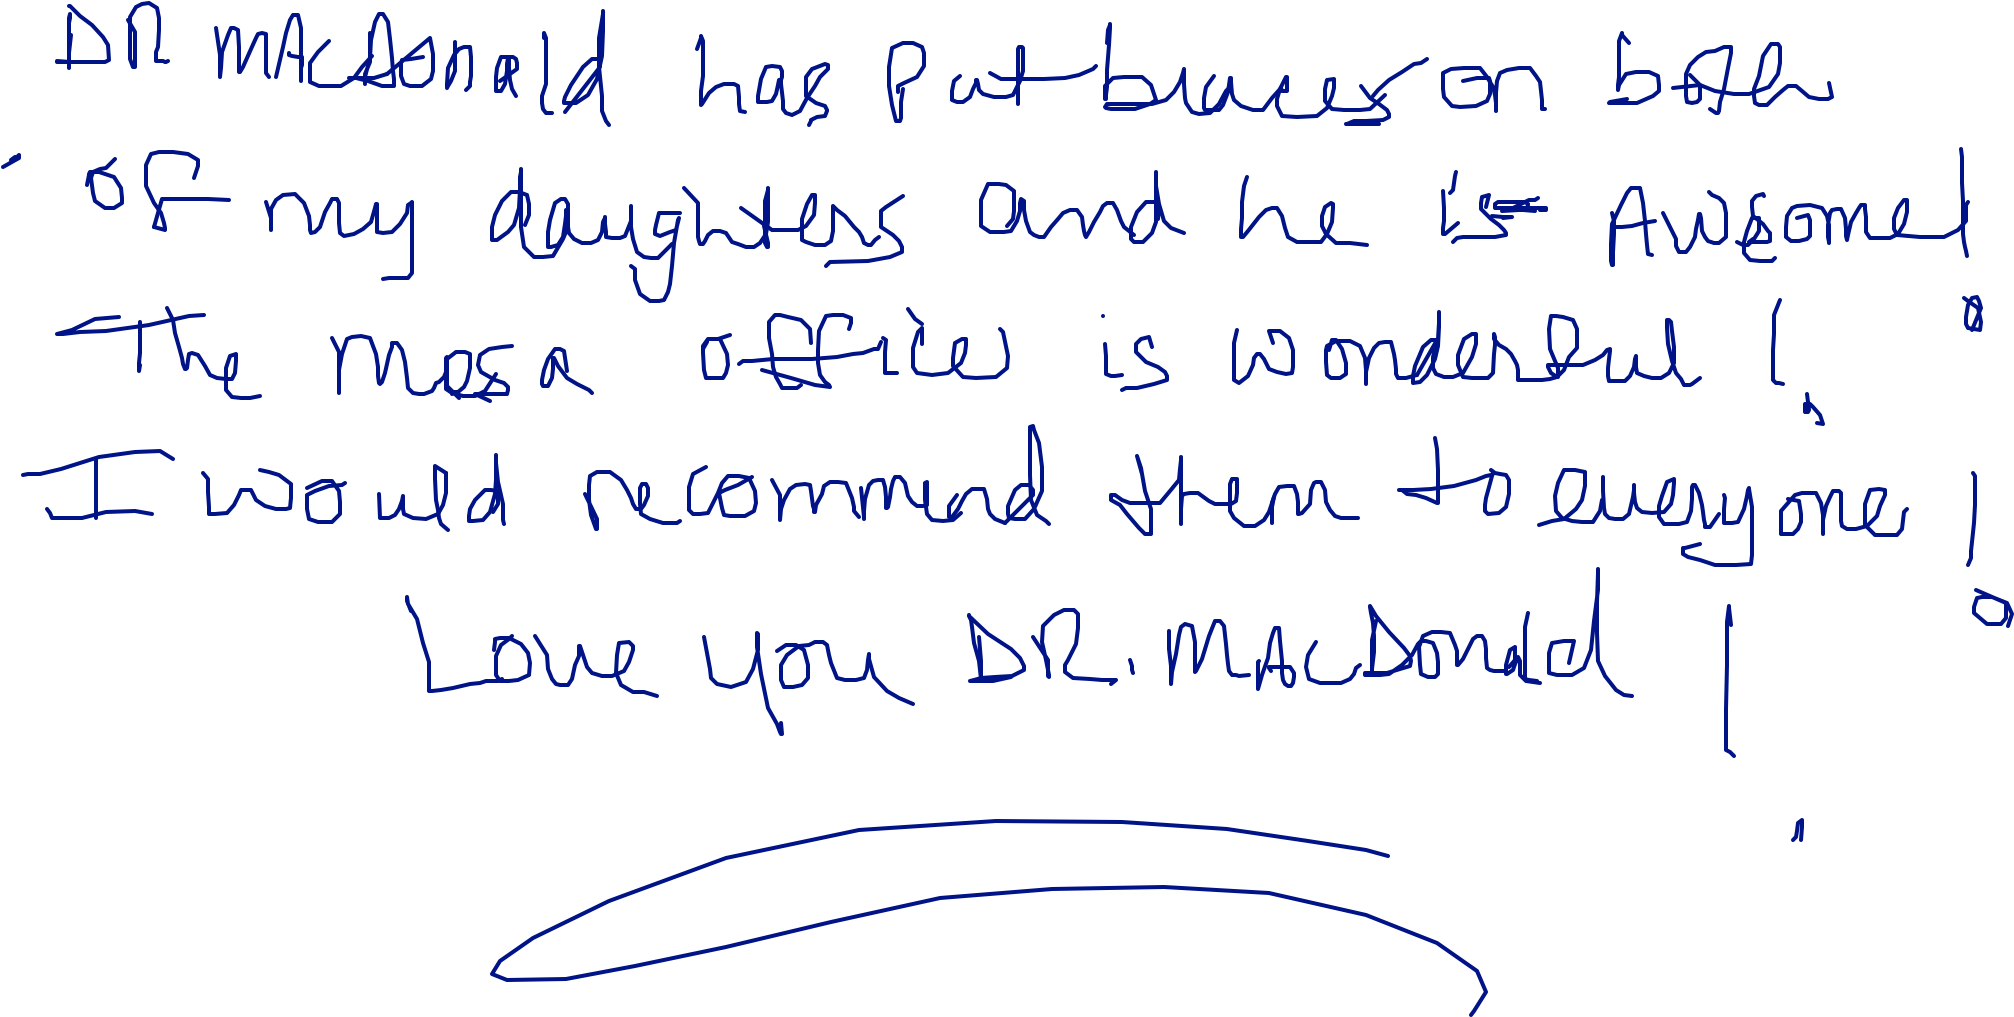 DR MACDonald has Put braces on both
of my daughters and he is Awsome!
The mesa office is wonderful!
I would recommend them to everyone!
Love you DR. MACDonald!